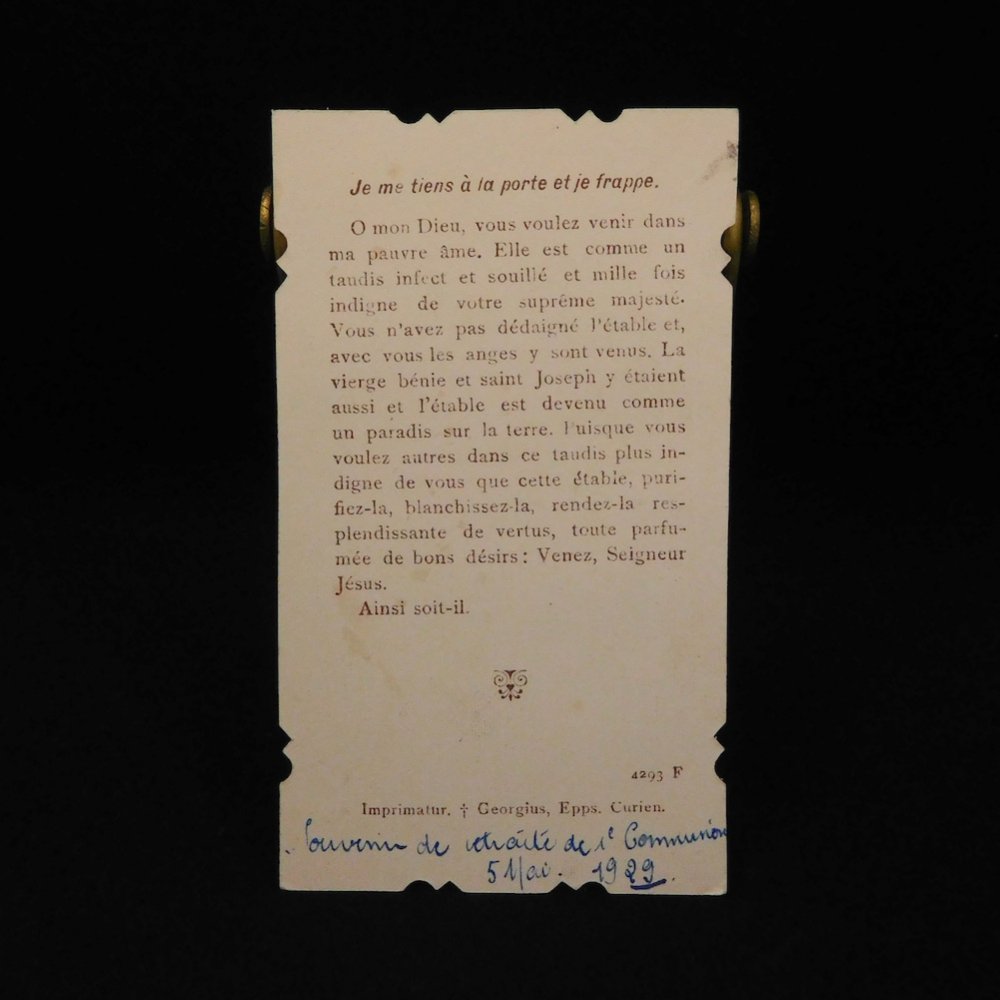 Je me tiens à la porte et je frappe.
O mon Dieu, vous voulez venir dans
ma pauvre âme. Elle est comme un
taudis infect et souillé et mille fois
indigne de votre suprême majesté.
Vous n'avez pas dédaigné l'étable et,
avec vous les anges y sont venus. La
vierge bénie et saint Joseph y étaient
aussi et l'étable est devenu comme
un paradis sur la terre. Puisque vous
voulez autres dans ce taudis plus in-
digne de vous que cette étable, puri-
fiez-la, blanchissez-la, rendez-la res-
plendissante de vertus, toute parfu-
mée de bons désirs: Venez, Seigneur
Jésus.
Ainsi soit-il.
4293 F
Imprimatur. † Georgius, Epps. Curien.
Souvenir de retraite de 1e Communion
5 Mai. 1929.